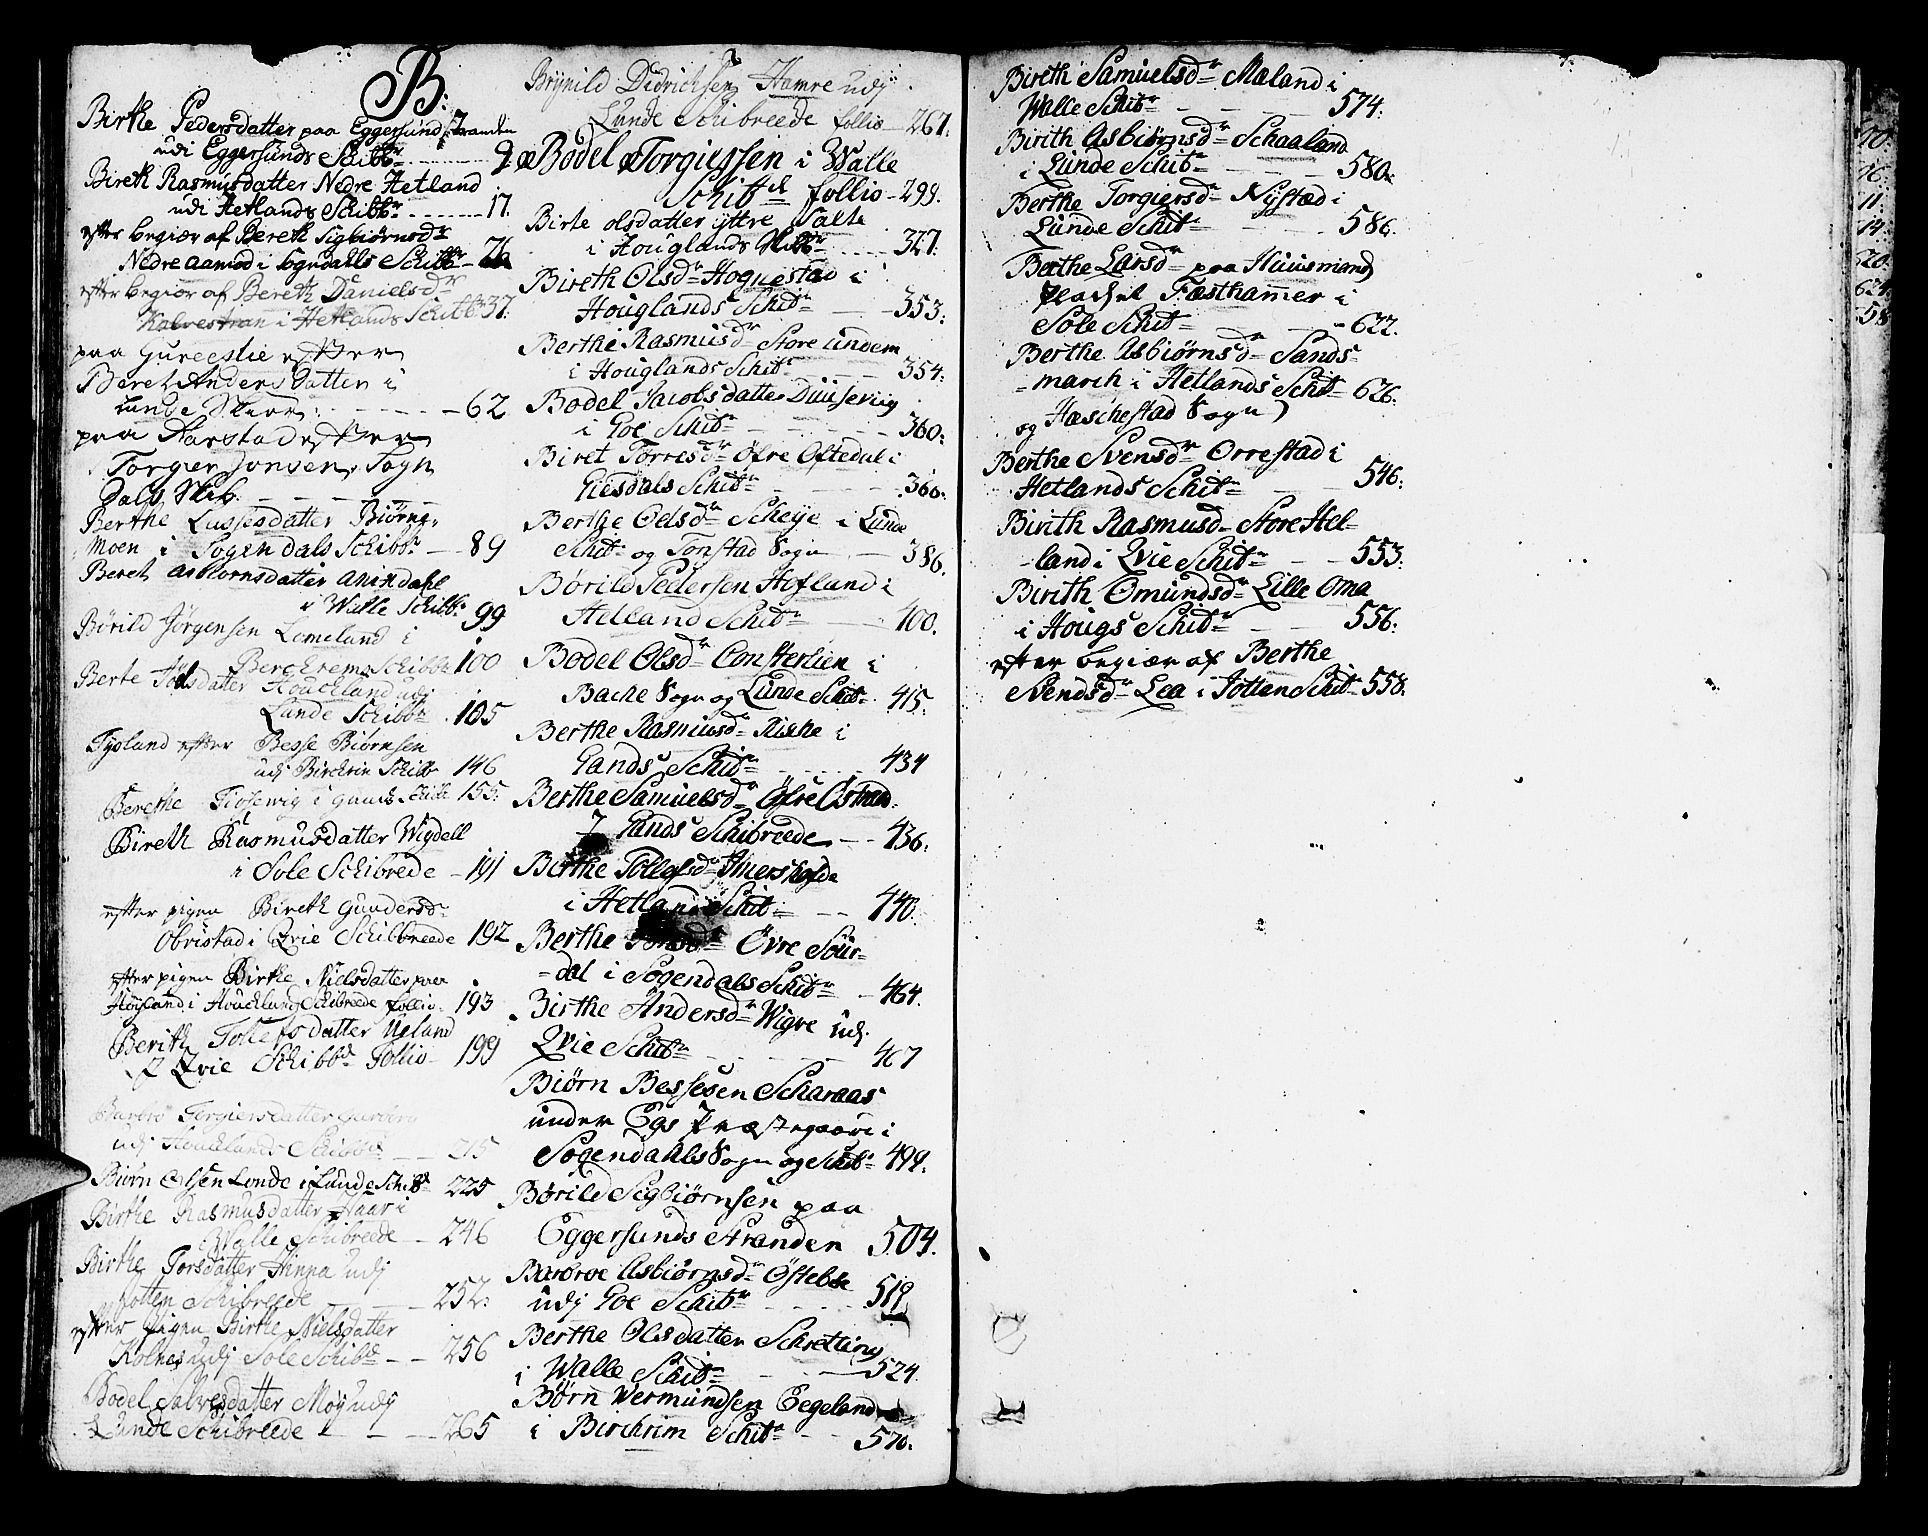 B:
Birthe Pedersdatter paa Eggersund stranden
udi Eggersunds Skibbr 9
Bireth Rasmusdatter Nedre Hetland
udi Hetlands Skibbr 17.
efter begiær af Bereth Sigbiørnsdr
Nedre aamod i Sogndahls Schibbr
efter begiær af Bereth Danielsdr
i Hetlands Schibbr 37.
paa efter
Beret Anders datter i
Lunde 62
paa efter
Torgier Jonsen, Sogn
Dals Skib.
Berthe datter Biørne
moen i Sogendals Schibbr 89
Beret datter
i Walle Schibbr 99
Børild Jørgensen Lomeland i
Berchrem Schibbr 100
Berte datter Houchland udj
Lunde Schibbr 105
Tysland efter Besse Biørnsen
udj Birchrin Schibbr 146
Berethe i Schibr 155.
Bireth Rasmusdatter Wigdell
i Sole Schibrede 191
efter pigen Bireth Gundersdr
Obristad i Qvie Schibbreede 192
efter pigen Birthe Nielsdatter paa
Høyland i Houchland Schibreede follio 193
Berith Tollefsdatter
i Qvie Schibbr Follio 199
Barbro Torgiersdatter
udj Houchlands Schibbr 215
Biørn Olsen Londe i Lunde Schibr 225
Birthe Rasmusdatter Haar i
Walle Schibreede 246
Birthe Torsdatter Hinna udj
Jotten Schibreede 252:
efter pigen Birthe Nielsdatter
Kolnes udj Sole Schibr 256
Bodel Salvesdatter Moy udj
Lunde Schibreede 265
Brynild Didrichsen Hamre udj
Lunde Schibreede follio 267:
Bodel Torgiessen i Walle
Schibr follio 299.
Birte olsdatter yttre Salte
i Houglands Skibbr 327.
Bireth Olsdr Hognestad i
Houglands Schibr 353:
Berthe Rasmusdr Store undem
i Houglands Schibr 354:
Bodel Jacobsdatter Duusevig
i Goe Schibr 360:
Biret Torresdr Øfre Oftedal i
Giesdals Schibr 366:
Berthe Oelsdr Scheye i Lunde
Schibr og Tonstad Sogn 386.
Børild Pedersen Hefland i
Helland Schibr 400.
Bodel Olsdr Consterlien i
Bache Sogn og Lunde Schibr 415:
Berthe Rasmusdr Riske i
Gands Schibr 434
Berthe Samuelsdr Øfre Ostraad
I Gands Schibreede 436:
Berthe Tollefsdr
i Hetland Schibr 440.
Berthe Øvre Souer-
dal i Sogendals Schibr 464.
Birthe Andersdr Wigre udj.
Qvie Schibr 467
Biørn Bessesen Scharaas
under Egs Præstegaare i
Sogendahls Sogn og Schibr 499:
Børild Sigbiørnsen paa
Eggersunds Stranden 504.
Barbroe Asbiørnsdr Østebøe
udj Goe Schibr 519
Berthe Olsdatter Schretting
i Walle Schibr 524
Børn Wermundsen Eegeland
i Birchrim Schibr 570:
Bireth Samuelsdr Mæland i
Walle Schibr 574:
Birith Asbiørnsdr Schaaland
i Lunde Schibr 580:
Berthe Torgiersdr Nystæd i
Lunde Schibr 586:
Berthe Larsdr paa Huusmand
pladset Fæsthammer i
Sole Schibr 622.
Berthe Asbiørnsdr Sands-
march i Hetlands Schibr 626:
og Hæschestad Sogn)
Berthe Svensdr Orrestad i
Hetlands Schibr 546:
Birith Rasmusdr Store Hel-
land i Qvie Schibr 553:
Birith Omundsdr Lille Oma
i Hougs Schibr 556:
efter begiær af Berthe
Svendsdr Lea i Jotten Schibr 558.